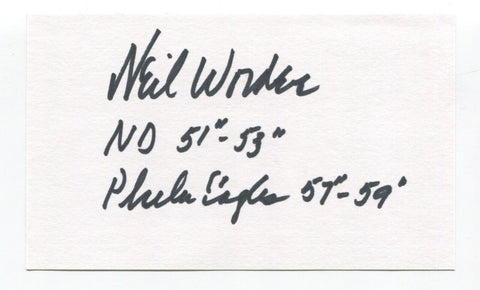 Neil Worden
ND 51"-53"
Phila Eagles 57"-59"